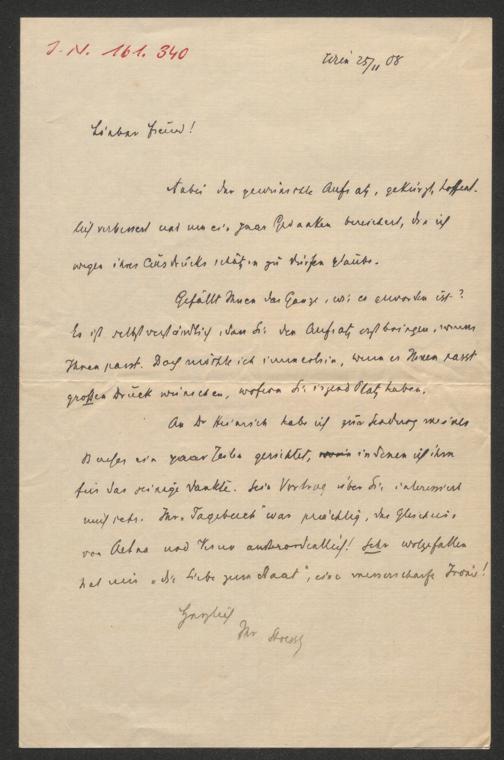 J. N. 161.340
Wien 25/II 08
Lieber Freund!
Anbei der gewünschte Aufsatz, gekürzt, hoffent-
lich verbessert und um ein paar Gedanken bereichert, die ich
wegen ihres Ausdrucks schätzen zu dürfen glaube.
Gefällt Ihnen das Ganze, wie es geworden ist?
Es ist selbstverständlich, dass Sie den Aufsatz erst bringen, wenns
Ihnen passt. Doch möchte ich immerhin, wenn es Ihnen passt
großen Druck wünschen, wofern Sie irgend Platz haben.
An Dr Heinrich habe ich zur Sendung meines
Buches ein paar Zeilen gerichtet, in denen ich ihm
für das seinige dankte. Sein Vortrag über Sie interessiert
mich sehr. Ihr „Tagebuch" war prächtig, das Gleichnis
von Aetna und Vesuv außerordentlich! Sehr wolgefallen
hat mir „die Liebe zum Staat", eine messerscharfe Ironie!
Herzlich
Ihr Stoessl